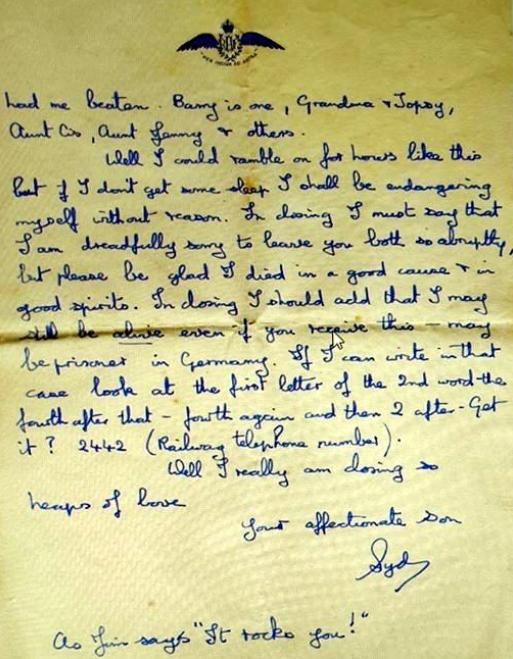 PER ARDUA AD ASTRA
had me beaten. Barry is one, Grandma & Topsy,
Aunt Cis, Aunt Fanny & others.
Well I could ramble on for hours like this
but if I don't get some sleep I shall be endangering
myself without reason. In closing I must say that
I am dreadfully sorry to leave you both so abruptly,
but please be glad I died in a good cause & in
good spirits. In closing I should add that I may
still be alive even if you receive this – may
be prisoner in Germany. If I can write in that
case look at the first letter of the 2nd word – the
fourth after that – fourth again and then 2 after – Get
it? 2442 (Railway telephone number).
Well I really am closing so
heaps of love
Your affectionate son
Syd
As Jim says "It rocks you!"